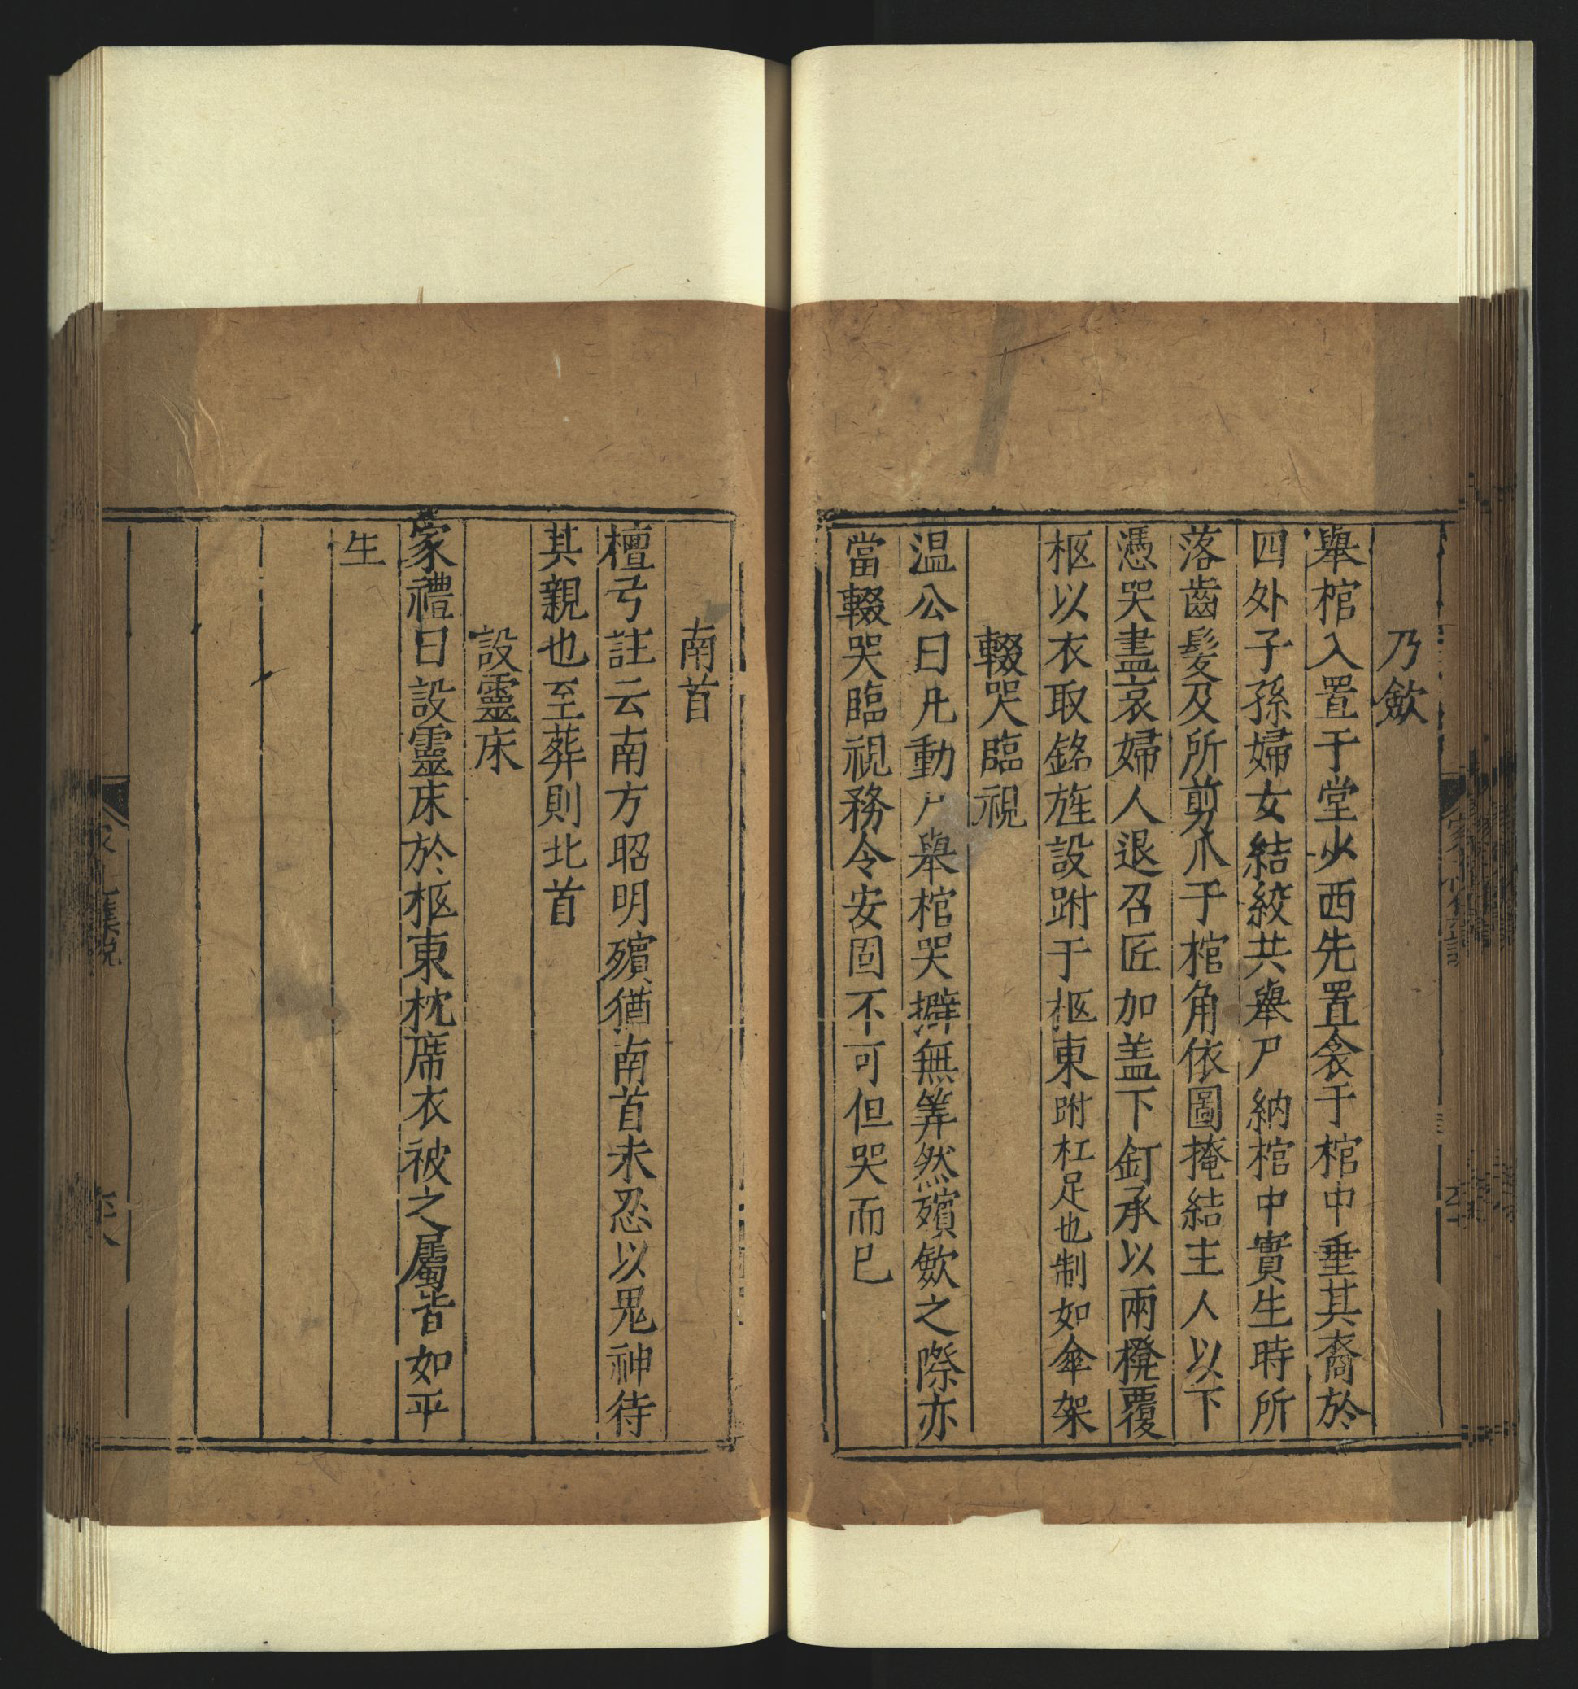 乃斂
舉棺入置于堂少西先置衾于棺中垂其裔於
四外子孫婦女結絞共舉尸納棺中實生時所
落齒髮及所剪爪于棺角依圖掩結主人以下
憑哭盡哀婦人退召匠加盖下釘承以兩櫈覆
柩以衣取銘旌設跗于柩東跗杠足也制如傘架
輟哭臨視
温公曰凡動尸舉棺哭擗無筭然殯斂之際亦
當輟哭臨視務令安固不可但哭而已
南首
檀弓註云南方昭明殯猶南首未忍以鬼神待
其親也至葬則北首
設靈床
家禮曰設靈床於柩東枕席衣被之屬皆如平
生